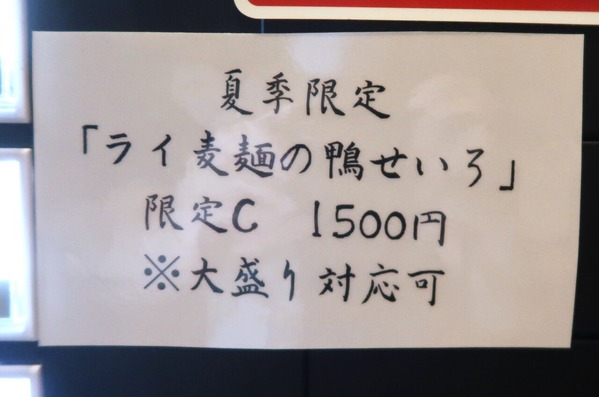 夏季限定
「ライ麦麺の鴨せいろ」
限定C　1500円
※大盛り対応可